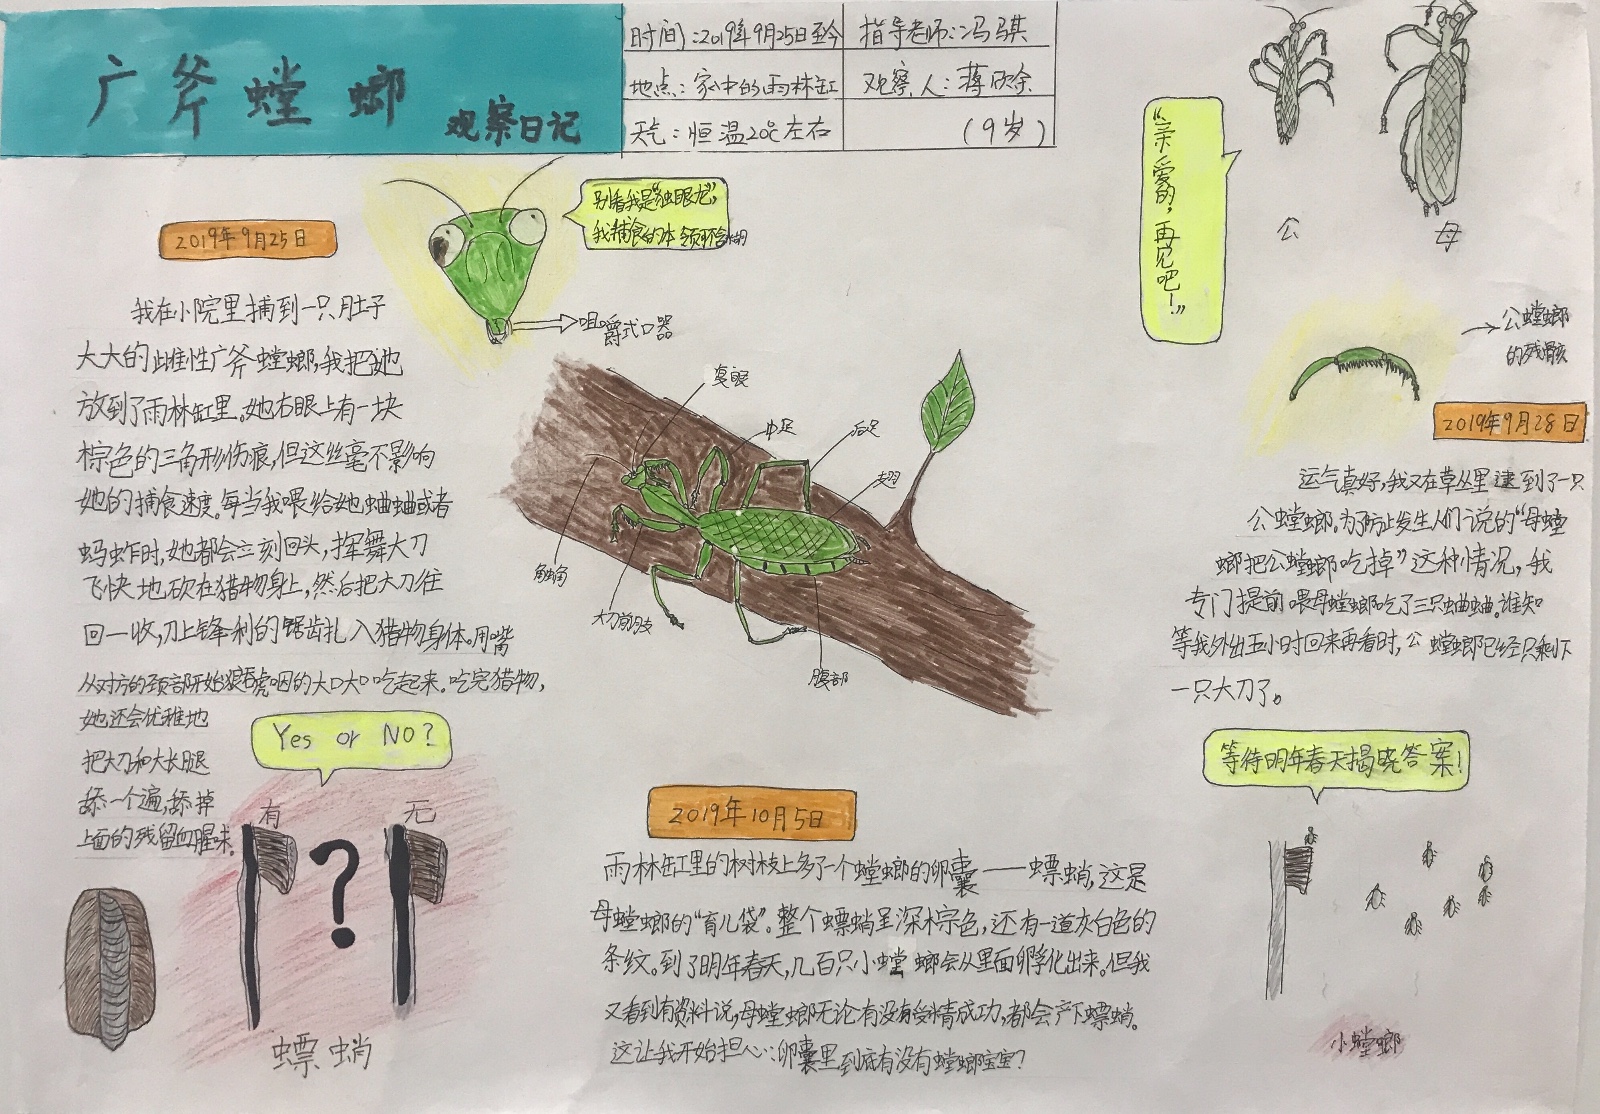 广斧螳螂
观察日记
时间:2019年9月25日至今
指导老师:冯骐
地点:家中的雨林缸
观察人:蒋欣余
天气:恒温20℃左右
(9岁)
2019年9月25日
别看我是"独眼龙",
我捕食的本领不含糊
咀嚼式口器
我在小院里捕到一只肚子
大大的雌性广斧螳螂,我把她
放到了雨林缸里。她右眼上有一块
棕色的三角形伤痕,但这丝毫不影响
她的捕食速度。每当我喂给她蛐蛐或者
蚂蚱时,她都会立刻回头,挥舞大刀
飞快地砍在猎物身上,然后把大刀往
回一收,刀上锋利的锯齿扎入猎物身体。用嘴
从对方的颈部开始狼吞虎咽的大口大口吃起来。吃完猎物,
她还会优雅地
把大刀和大长腿
舔一个遍,舔掉
上面的残留血腥味。
Yes or NO?
有
无
?
螵蛸
复眼
中足
后足
翅
触角
大刀前肢
腹部
2019年10月5日
雨林缸里的树枝上多了一个螳螂的卵囊——螵蛸,这是
母螳螂的"育儿袋"。整个螵蛸呈深棕色,还有一道灰白色的
条纹。到了明年春天,几百只小螳螂会从里面孵化出来。但我
又看到有资料说,母螳螂无论有没有受精成功,都会产下螵蛸。
这让我开始担心:卵囊里到底有没有螳螂宝宝?
"亲爱的,再见吧!"
公
母
公螳螂
的残骸
2019年9月28日
运气真好,我又在草丛里逮到了一只
公螳螂。为了防止发生人们说的"母螳
螂把公螳螂吃掉"这种情况,我
专门提前喂母螳螂吃了三只蛐蛐。谁知
等我外出五小时回来再看时,公螳螂已经只剩下
一只大刀了。
等待明年春天揭晓答案!
小螳螂